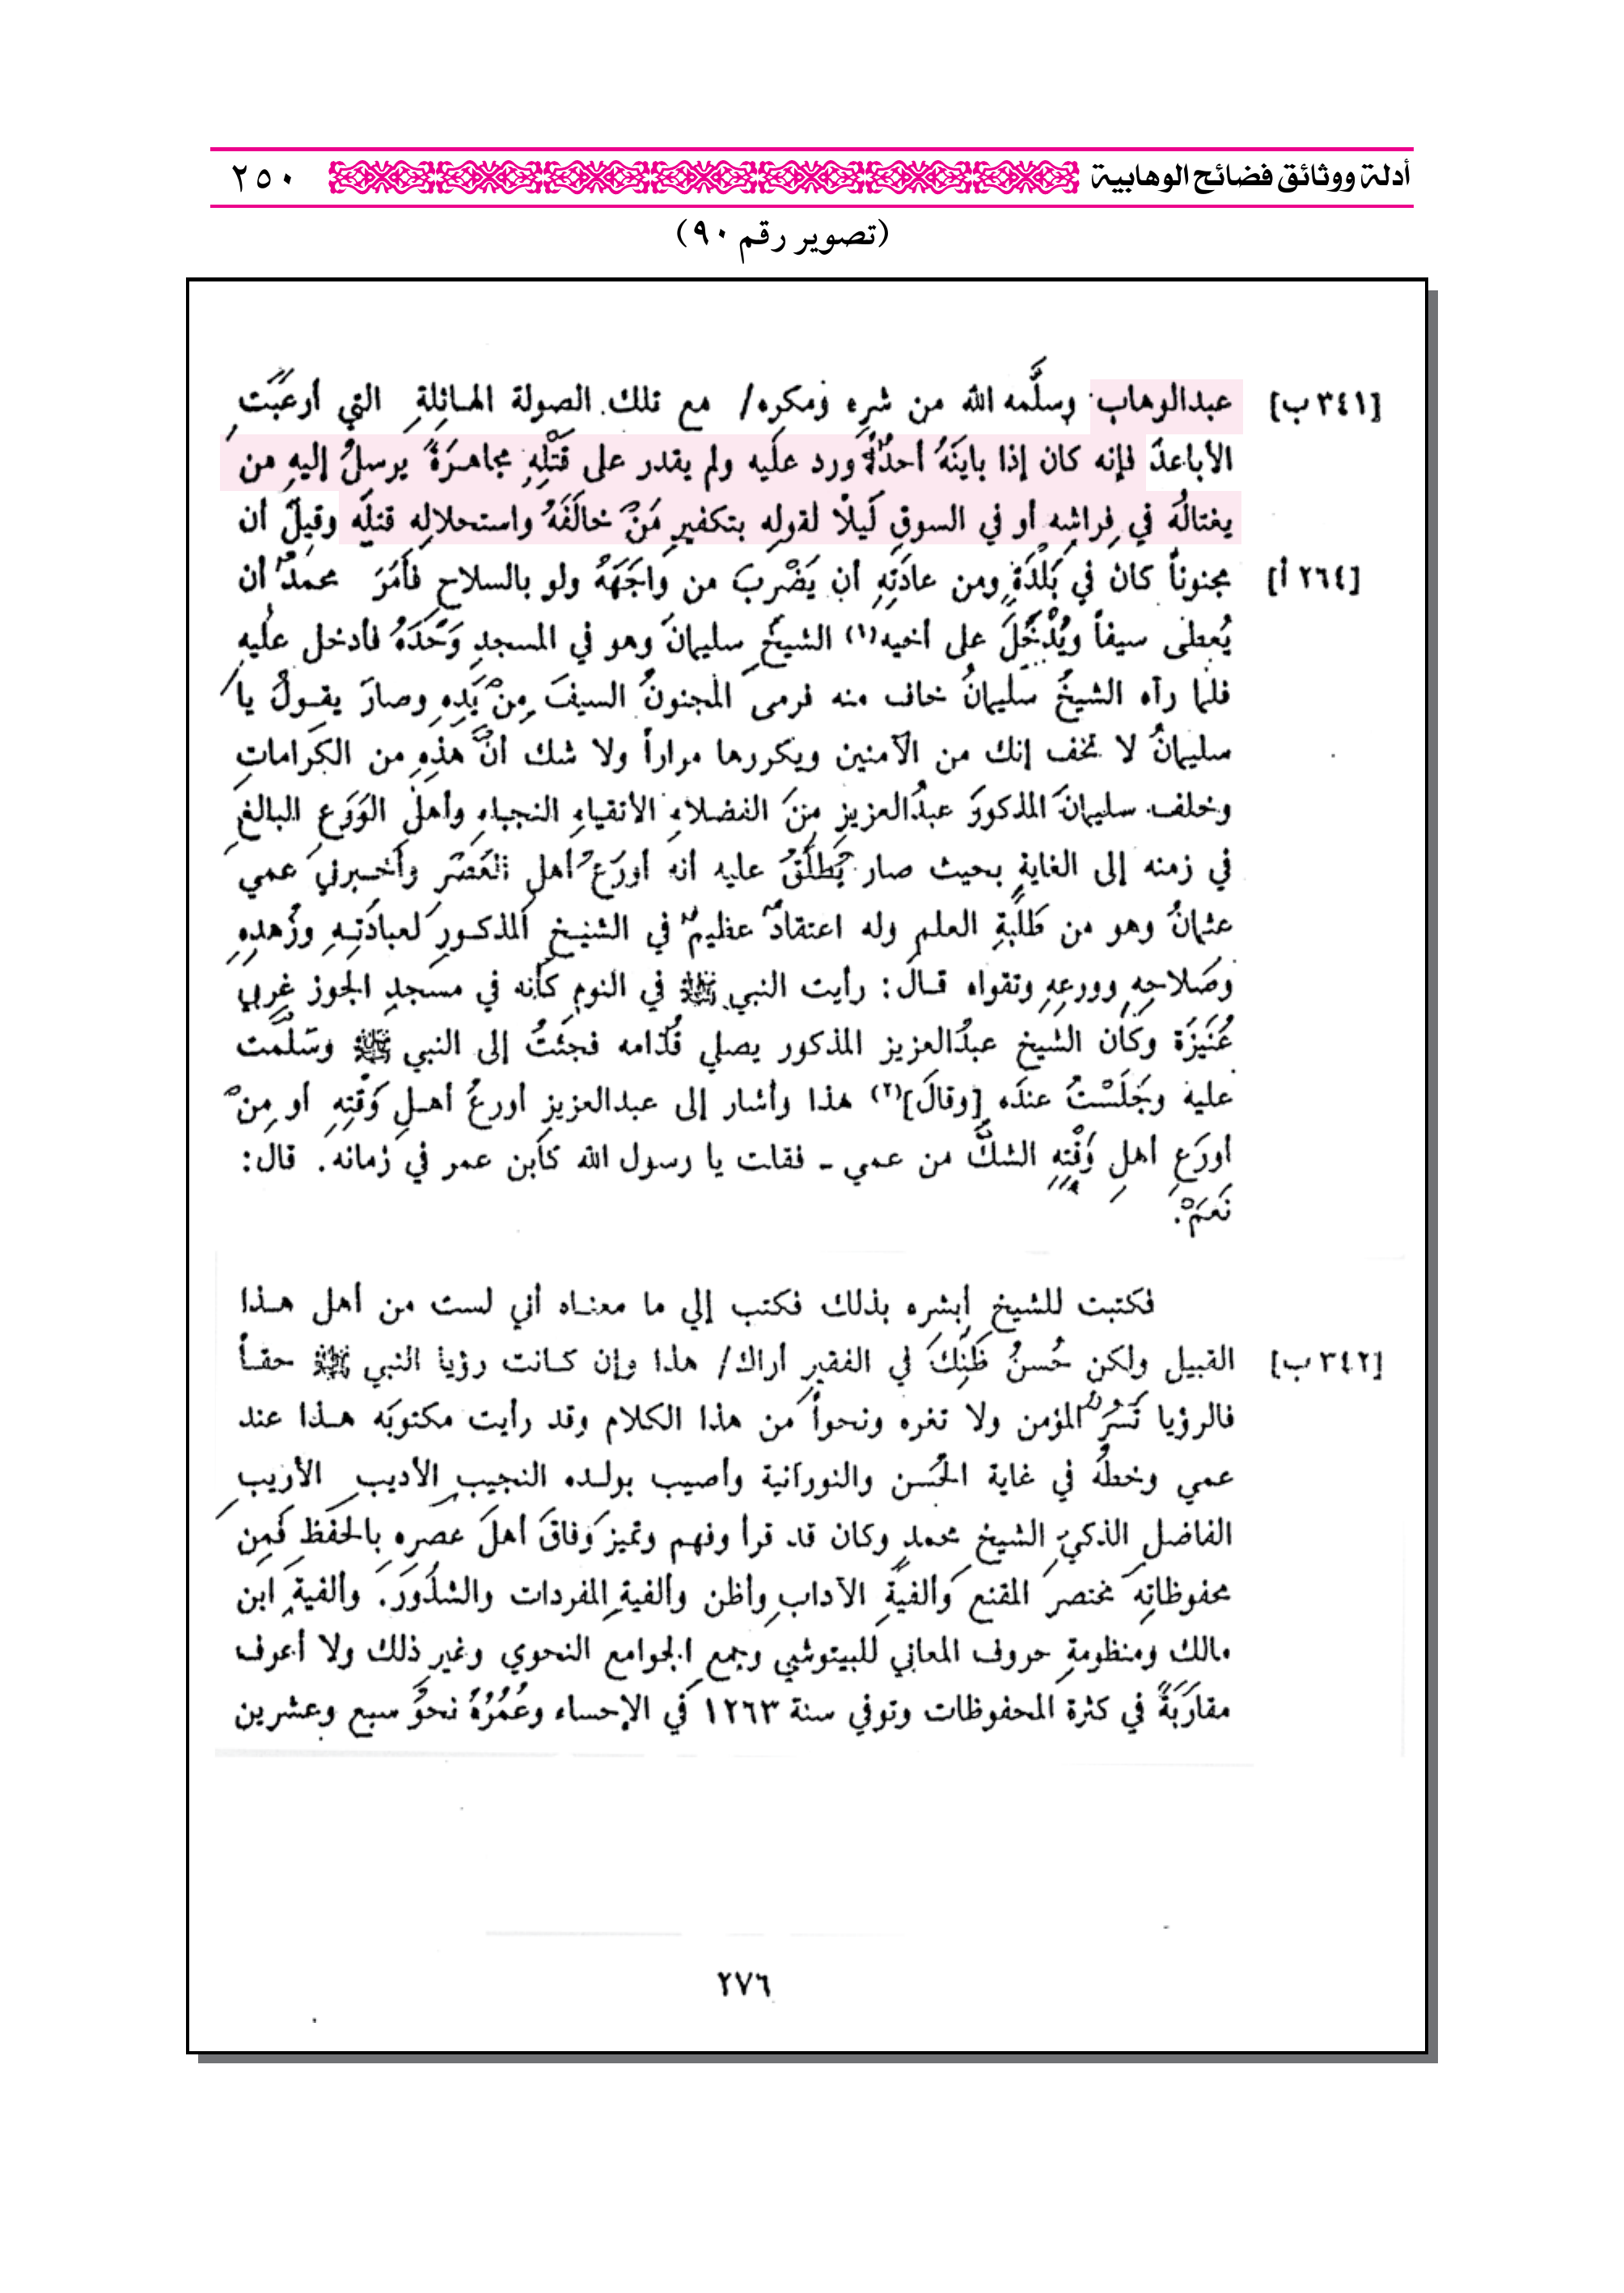 أدلة ووثائق فضائح الوهابية ٢٥٠
(تصوير رقم ٩٠)
[٣٤١ ب] عبدالوهاب وسلَّمه الله من شرِه ومكرِه/ مع تلك الصولة الهائلةِ التي أرعَبَت
الأباعدَ فإنه كان إذا باينَهُ أحدٌ ورد عليه ولم يقدر على قَتْلِهِ مجاهرَةً يرسلُ إليهِ من
يغتالُهُ في فراشِه أو في السوقِ لَيلًا لقولِه بتكفيرِ مَنْ خالَفَهُ واستحلالِه قتلِه وقيلَ أن
[٢٦٤ أ] مجنوناً كان في بَلْدَةٍ ومن عادَتِهِ أن يَضْرِبَ من وَاجَهَهُ ولو بالسلاحِ فأمَرَ محمدٌ أن
يُعطى سيفاً ويُدْخَلَ على أخيه(١) الشيخِ سليمانَ وهو في المسجدِ وَحْدَهُ فأدخل عليهِ
فلما رآه الشيخُ سليمانُ خاف منه فرمى المجنونُ السيفَ مِنْ يَدِهِ وصارَ يقولُ يا
سليمانُ لا تخف إنك من الآمنين ويكررها مراراً ولا شك أنَّ هذِهِ من الكراماتِ
وخلف سليمانَ المذكورَ عبدُالعزيزِ مِنَ الفضلاءِ الأتقياءِ النجباءِ وأهلِ الوَرَعِ البالغِ
في زمنه إلى الغايةِ بحيث صار يُطلَقُ عليه أنه أورَعُ أهلِ العَصْرِ وأخبرني عمي
عثمانُ وهو من طَلَبةِ العلمِ وله اعتقادٌ عظيمٌ في الشيخِ المذكورِ لعبادَتِهِ وزُهدِهِ
وصَلاحِهِ وورعِهِ وتقواه قال: رأيت النبي ﷺ في النومِ كأنه في مسجدِ الجوز غربي
عُنَيزَة وكان الشيخ عبدُالعزيز المذكور يصلي قُدّامه فجئتُ إلى النبي ﷺ وسَلَّمت
عليه وجَلَسْتُ عندَه [وقالَ](٢) هذا وأشار إلى عبدالعزيزِ أورعُ أهلِ وَقْتِهِ أو مِنْ
أورَعِ أهلِ وَقْتِهِ الشكُّ من عمي ـ فقلت يا رسول الله كابن عمر في زمانه. قال:
نَعَمْ.
فكتبت للشيخ أبشره بذلك فكتب إلي ما معناه أني لست من أهل هذا
[٣٤٢ ب] القبيل ولكن حُسنُ ظَنِكَ في الفقيرِ أراك/ هذا وإن كانت رؤيا النبي ﷺ حقاً
فالرؤيا تَسُرُّ المؤمن ولا تغره ونحواً من هذا الكلام وقد رأيت مكتوبَه هذا عند
عمي وخطُه في غاية الحُسن والنورانية وأصيب بولده النجيبِ الأديبِ الأريبِ
الفاضلِ الذكيِ الشيخِ محمدٍ وكان قد قرأ وفهم وتميز وفاقَ أهلَ عصرِه بالحَفظِ فَمِن
محفوظاتِه مختصر المقنع وألفيةُ الآدابِ وأظن وألفية المفردات والشذور. وألفيةِ ابن
مالك ومنظومةِ حروف المعاني للبيتوشي وجمع الجوامع النحوي وغير ذلك ولا أعرف
مقارَبَةً في كثرة المحفوظات وتوفي سنة ١٢٦٣ في الإحساء وعُمُرُهُ نحوُ سبع وعشرين
٢٧٦